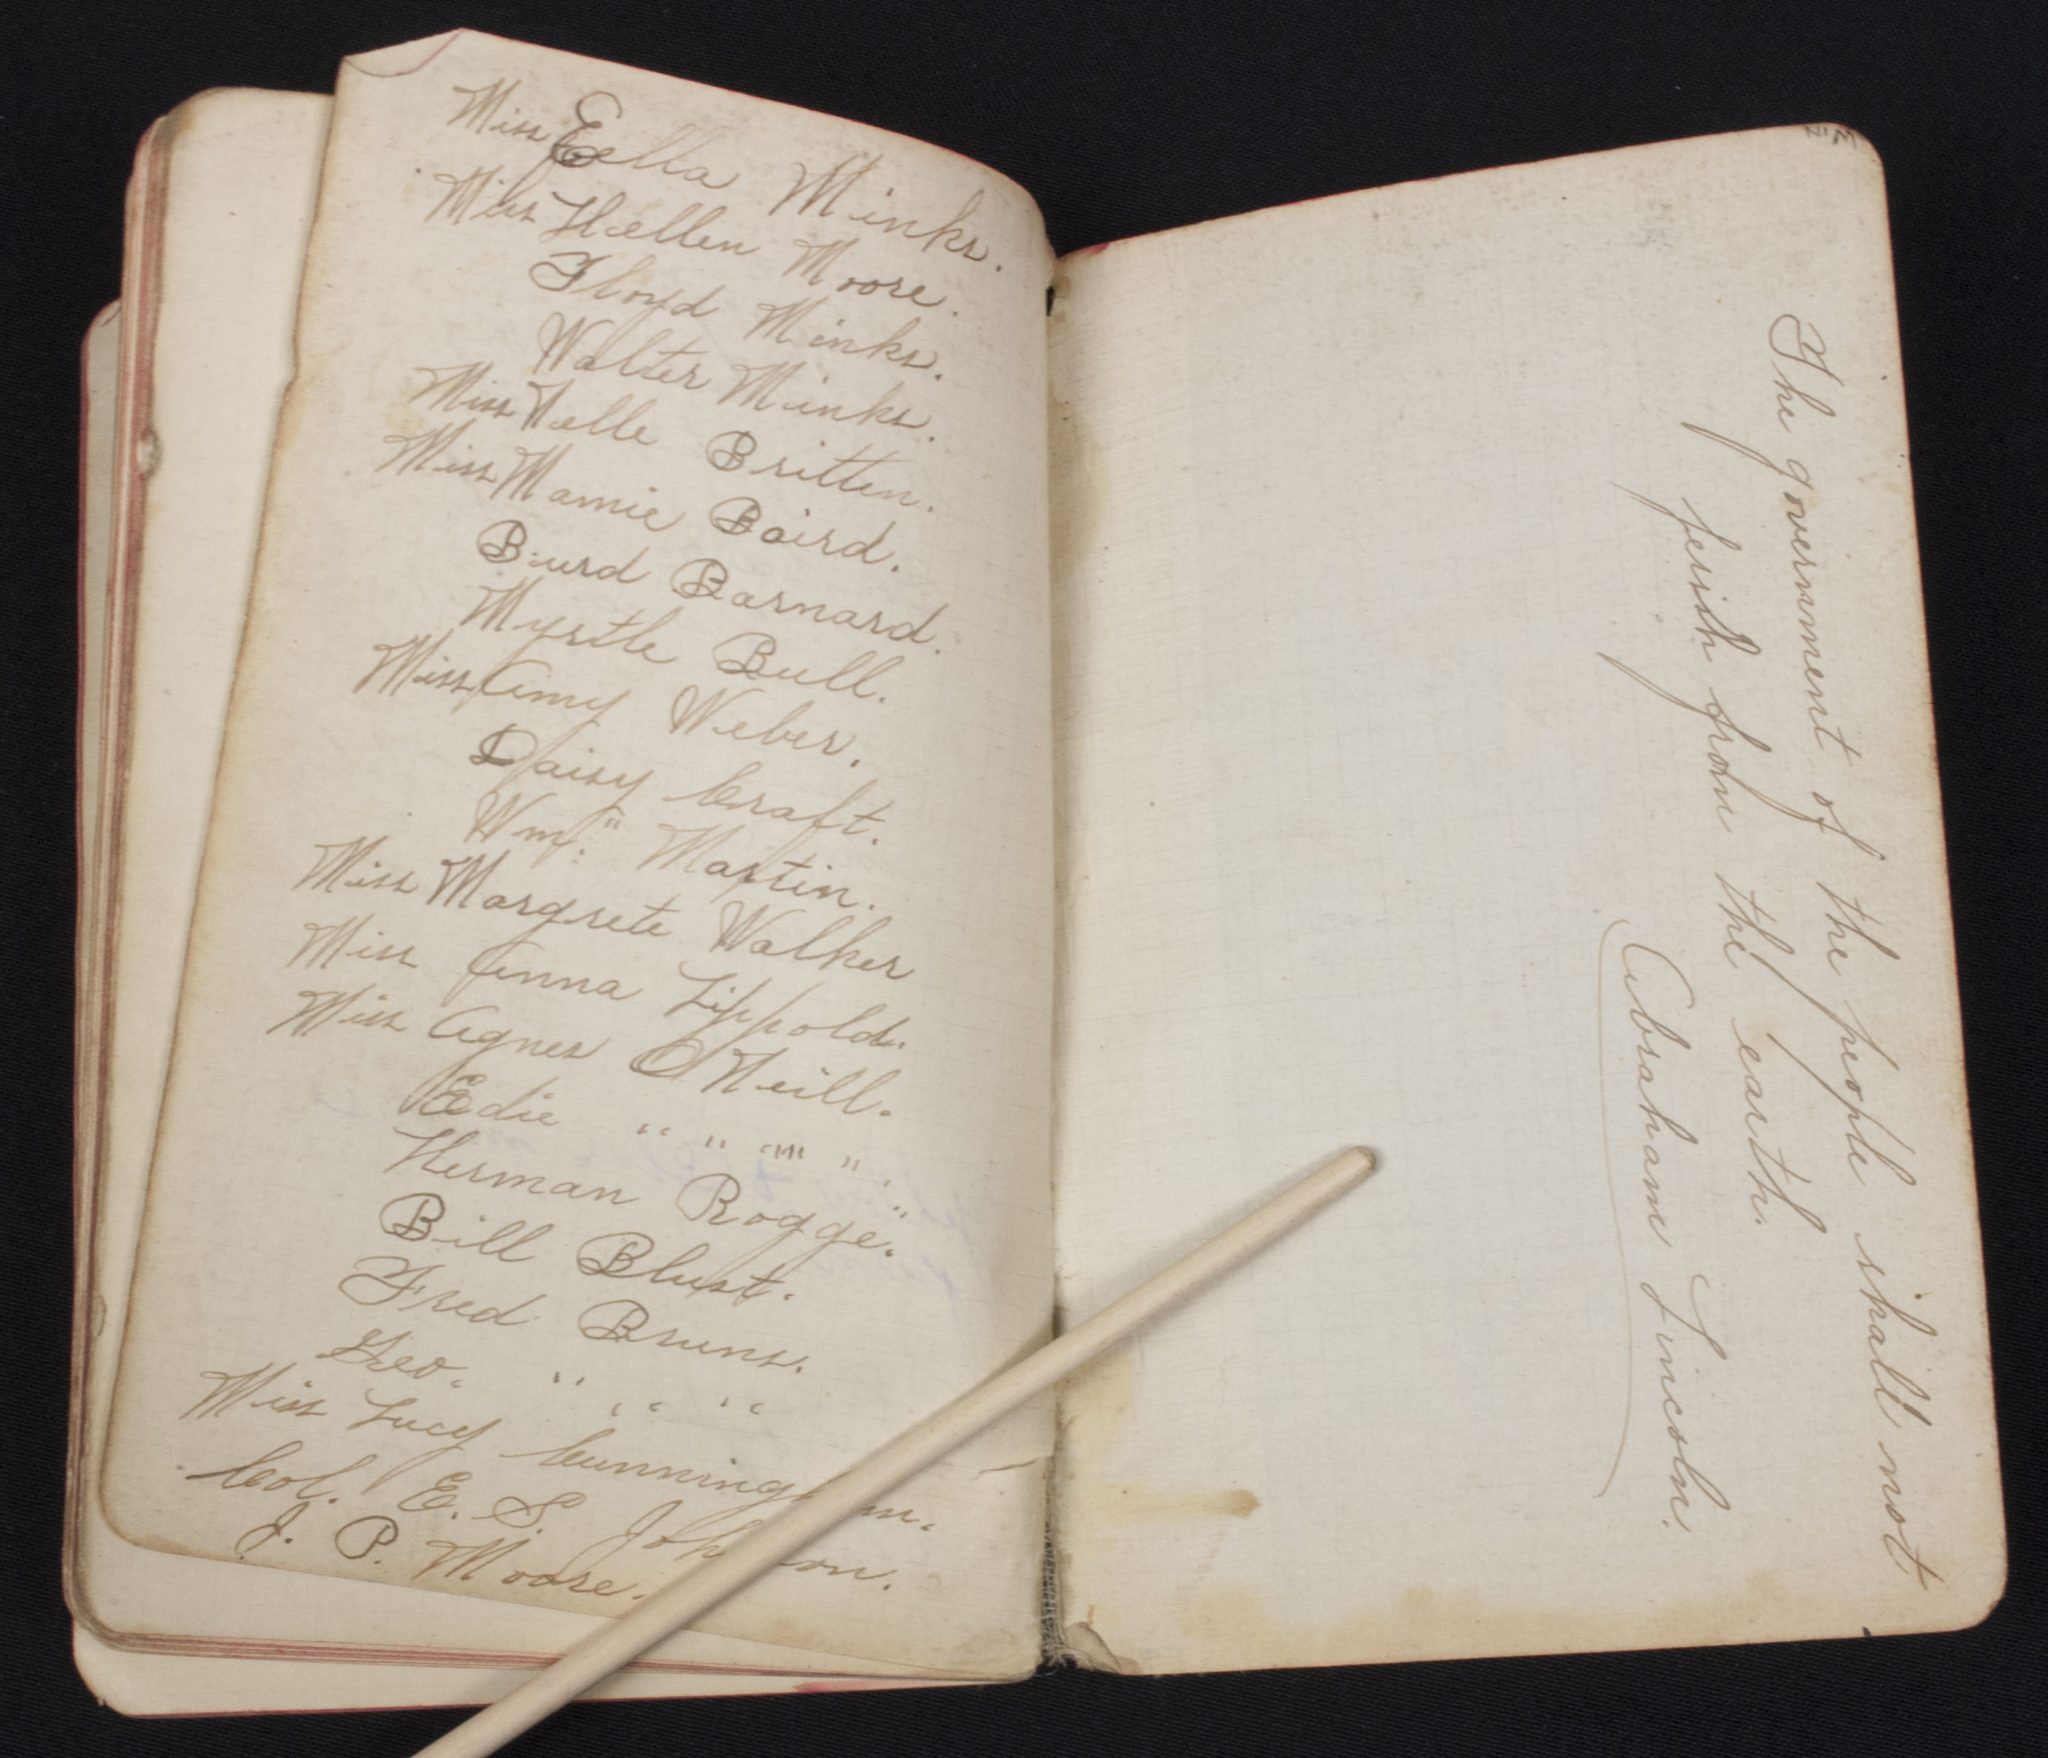 Miss Ella Minks.
Miss Hellen Moore.
Floyd Minks.
Walter Minks.
Miss Nelle Britten.
Miss Mamie Baird.
Burd Barnard.
Myrtle Bull.
Miss Amy Weber.
Daisy Craft.
Wm." Martin.
Miss Margrete Walker
Miss Anna Lippold.
Miss Agnes O Neill.
Edie " " " "
Herman Rogge.
Bill Blust.
Fred Bruns.
Geo. " " "
Miss Lucy
Col. E. S.
J. P. Moore.
The government of the people shall not
perish from the earth.
Abraham Lincoln.